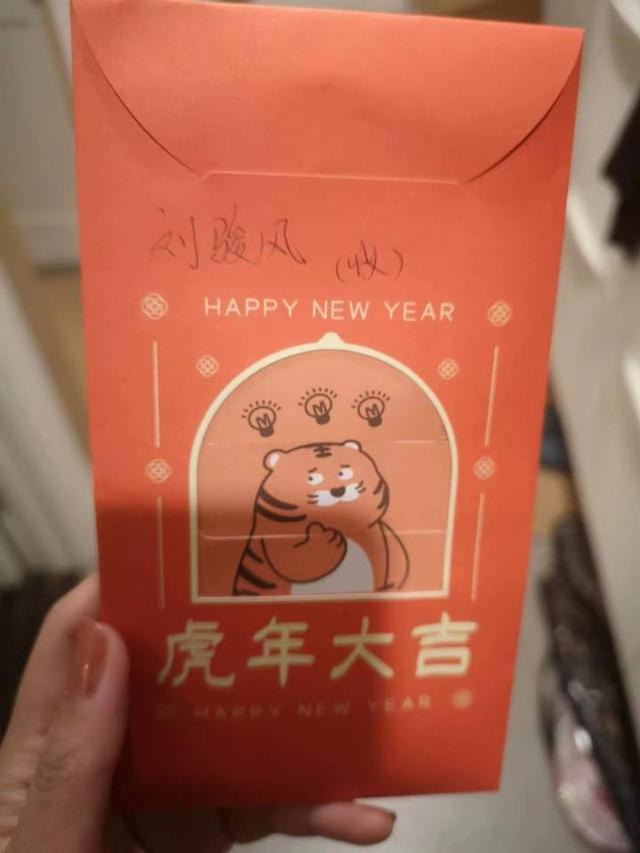 刘骏风 (收)
HAPPY NEW YEAR
虎年大吉
HAPPY NEW YEAR